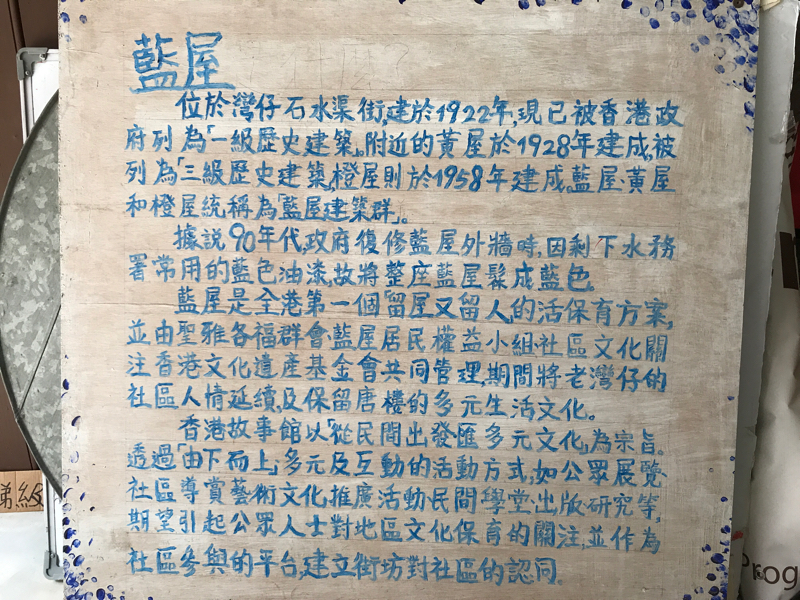 藍屋
位於灣仔石水渠街,建於1922年,現已被香港政
府列為「一級歷史建築」。附近的黃屋於1928年建成,被
列為「三級歷史建築」,橙屋則於1958年建成。藍屋、黃屋
和橙屋統稱為「藍屋建築群」。
據說90年代,政府復修藍屋外牆時,因剩下水務
署常用的藍色油漆,故將整座藍屋髹成藍色。
藍屋是全港第一個「留屋又留人」的活保育方案,
並由聖雅各福群會、藍屋居民權益小組、社區文化關
注、香港文化遺產基金會共同管理,期間將老灣仔的
社區人情延續,及保留唐樓的多元生活文化。
香港故事館以「從民間出發,匯多元文化」為宗旨。
透過「由下而上」,多元及互動的活動方式,如公眾展覽、
社區導賞、藝術文化推廣活動、民間學堂、出版研究等,
期望引起公眾人士對地區文化保育的關注,並作為
社區參與的平台,建立街坊對社區的認同。
梯級
Prog